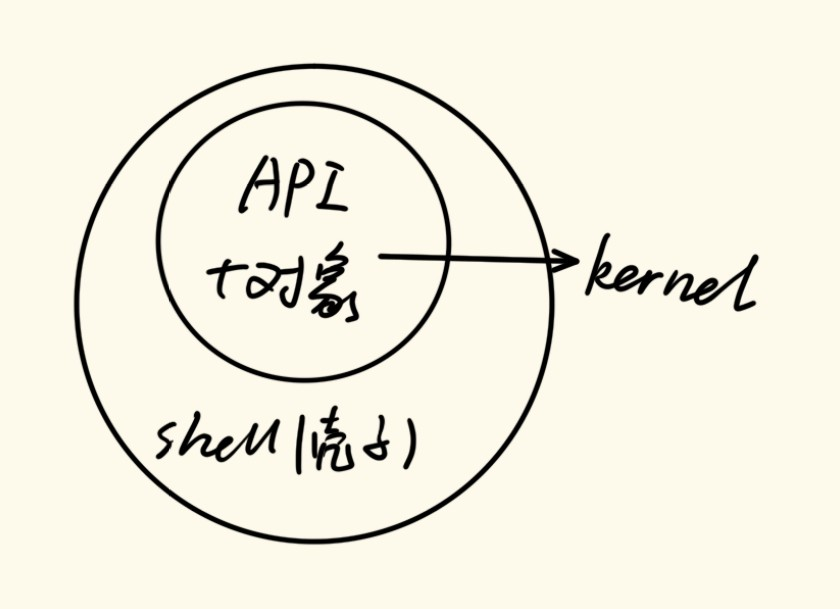 API
+对象
kernel
shell(壳子)